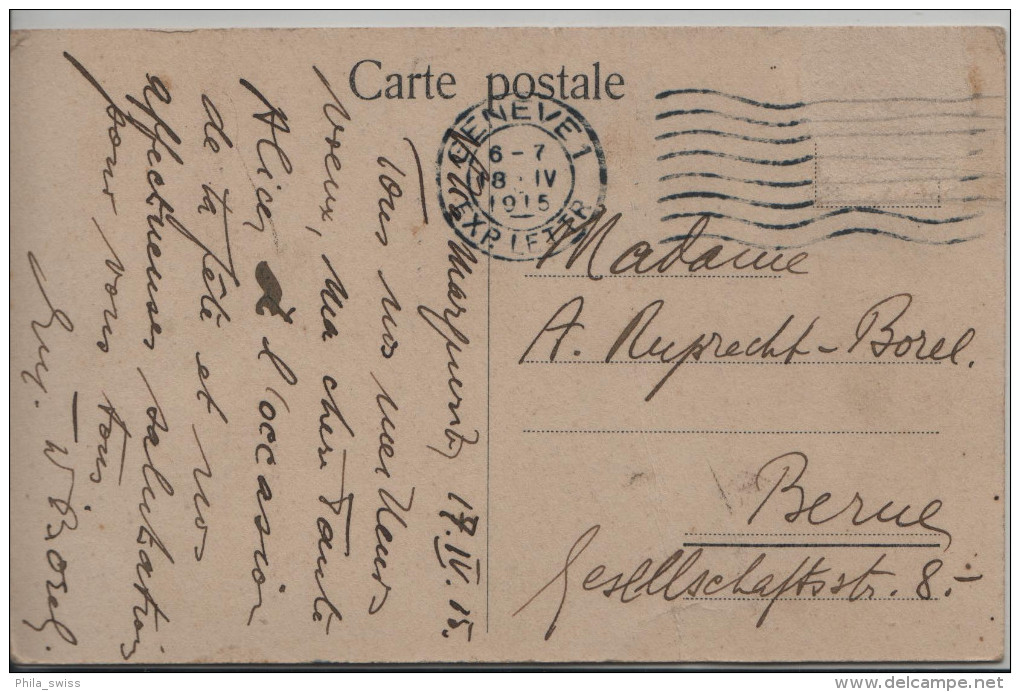 Carte postale
GENÈVE 1
6-7
18 IV
1915
EXP. LETTR.
Marpunt, 17.IV.15.
Tous nos meilleurs
voeux, ma chère Tante
Alice, à l'occasion
de ta fête et nos
affectueuses salutations
pour vous tous
Eug. W Borel.
Madame
A. Ruprecht-Borel.
Berne
Gesellschaftsstr. 8.-
Phila_swiss
delcampe.net